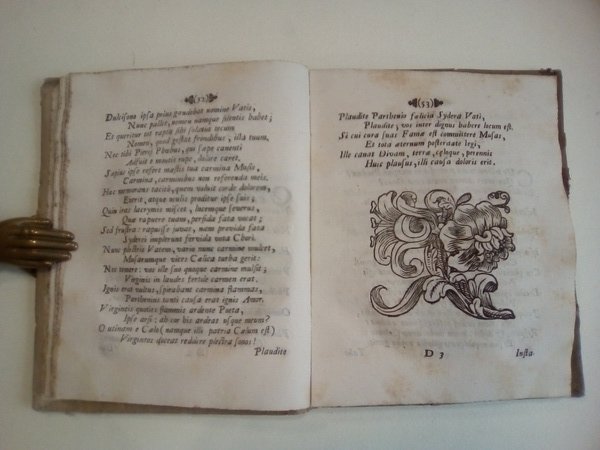 (52)
Dulcisono ipsa prius gaudebat nomine Vatis,
Nunc pallet, nomen namque silentis habet;
Et queritur tot rapta sibi solatia tecum
Nomen, quod gestit frondibus, illa tuum.
Nec tibi Pieri Phœbus, qui sæpe canenti
Adfuit e montis rupe, dolore caret.
Sæpius ipse refert mæstis tua carmina Musis,
Carmina, carminibus non referenda meis.
Huc memorans taciti, quem voluit corde dolorem,
Exerit, atque oculis proditur ipse suis;
Quin imis lacrymis miscet, lucemque severus,
Quæ rapuere tuam, perfida fata vocat;
Sed frustra: rapuisse juvat, nam provida fata
Syderei implerunt fervida vota Chori.
Nunc placidis Vatem, vario nunc carmine mulcet,
Musarumque vices Cælica turba gerit:
Nec temere: vos ille suo quoque carmine mulsit;
Virginis in laudes fertile carmen erat.
Ignis erat vultus, spirabant carmina flammas,
Parthenius tanti causa erat ignis Amor.
Virgineis quoties flammis ardente Poeta,
Ipse arsi: ah cur his ardeat usque meum?
O utinam e Cælo (namque illi patria Cælum est)
Virgineos queat reddere plectra sonos!
Plaudite
(53)
Plaudite Parthenio fœlicia Sydera Vati,
Plaudite, vos inter dignus habere locum est.
Si cui cura suas Famæ est committere Musas,
Et tota æternum posteritate legi,
Ille canat Divam, terræ, cœloque, perennis
Huic plausus, illi causa doloris erit.
D 3
Insta